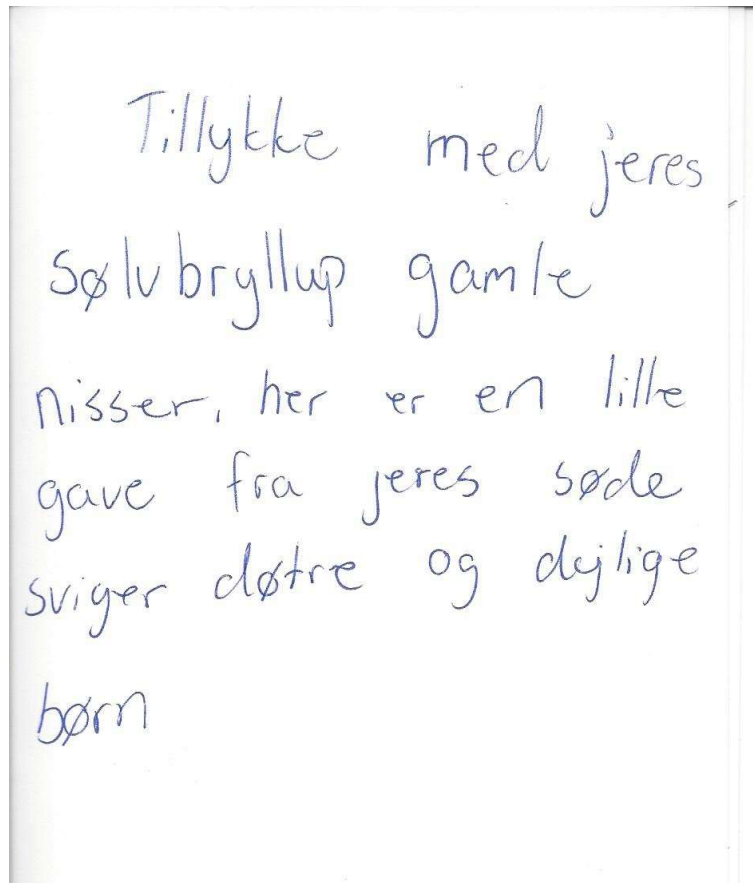 Tillykke med jeres
sølvbryllup gamle
nisser, her er en lille
gave fra jeres søde
sviger døtre og dejlige
børn